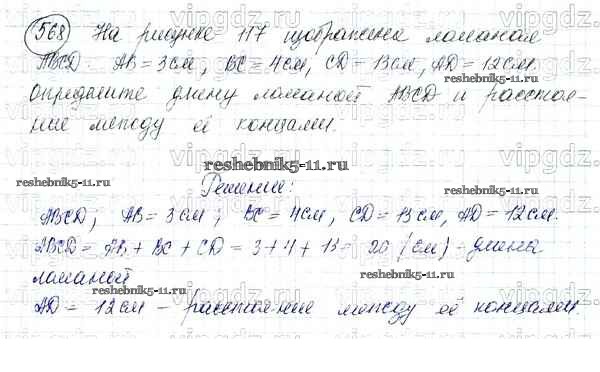 568 На рисунке 117 изображена ломаная
ABCD. AB = 3 см, BC = 4 см, CD = 13 см, AD = 12 см.
Определите длину ломаной ABCD и расстоя-
ние между её концами.
Решение:
ABCD; AB = 3 см; BC = 4 см, CD = 13 см, AD = 12 см.
ABCD = AB + BC + CD = 3 + 4 + 13 = 20 (см) - длина
ломаной
AD = 12 см - расстояние между её концами.
reshebnik5-11.ru
vipgdz.ru